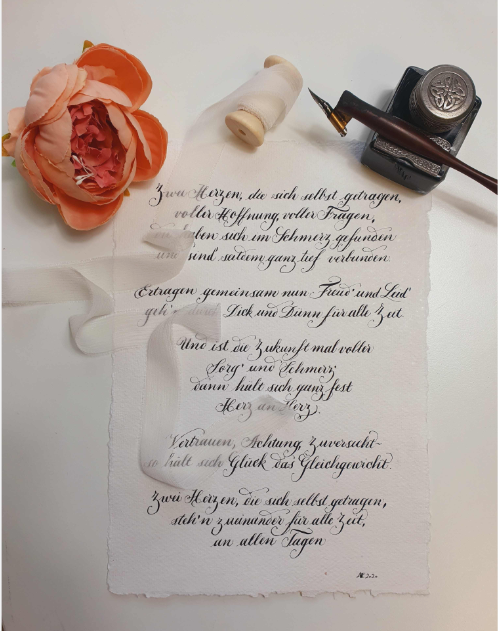 Zwei Herzen, die sich selbst getragen,
voller Hoffnung, voller Fragen,
die haben sich im Schmerz gefunden
und sind seitdem ganz tief verbunden.
Ertragen gemeinsam nun Freud' und Leid
geh'n durch Dick und Dünn für alle Zeit.
Und ist die Zukunft mal voller
Sorg' und Schmerz,
dann halt sich ganz fest
Herz an Herz.
Vertrauen, Achtung, Zuversicht-
so hält sich Glück das Gleichgewicht.
Zwei Herzen, die sich selbst getragen,
steh'n zueinander für alle Zeit,
an allen Tagen